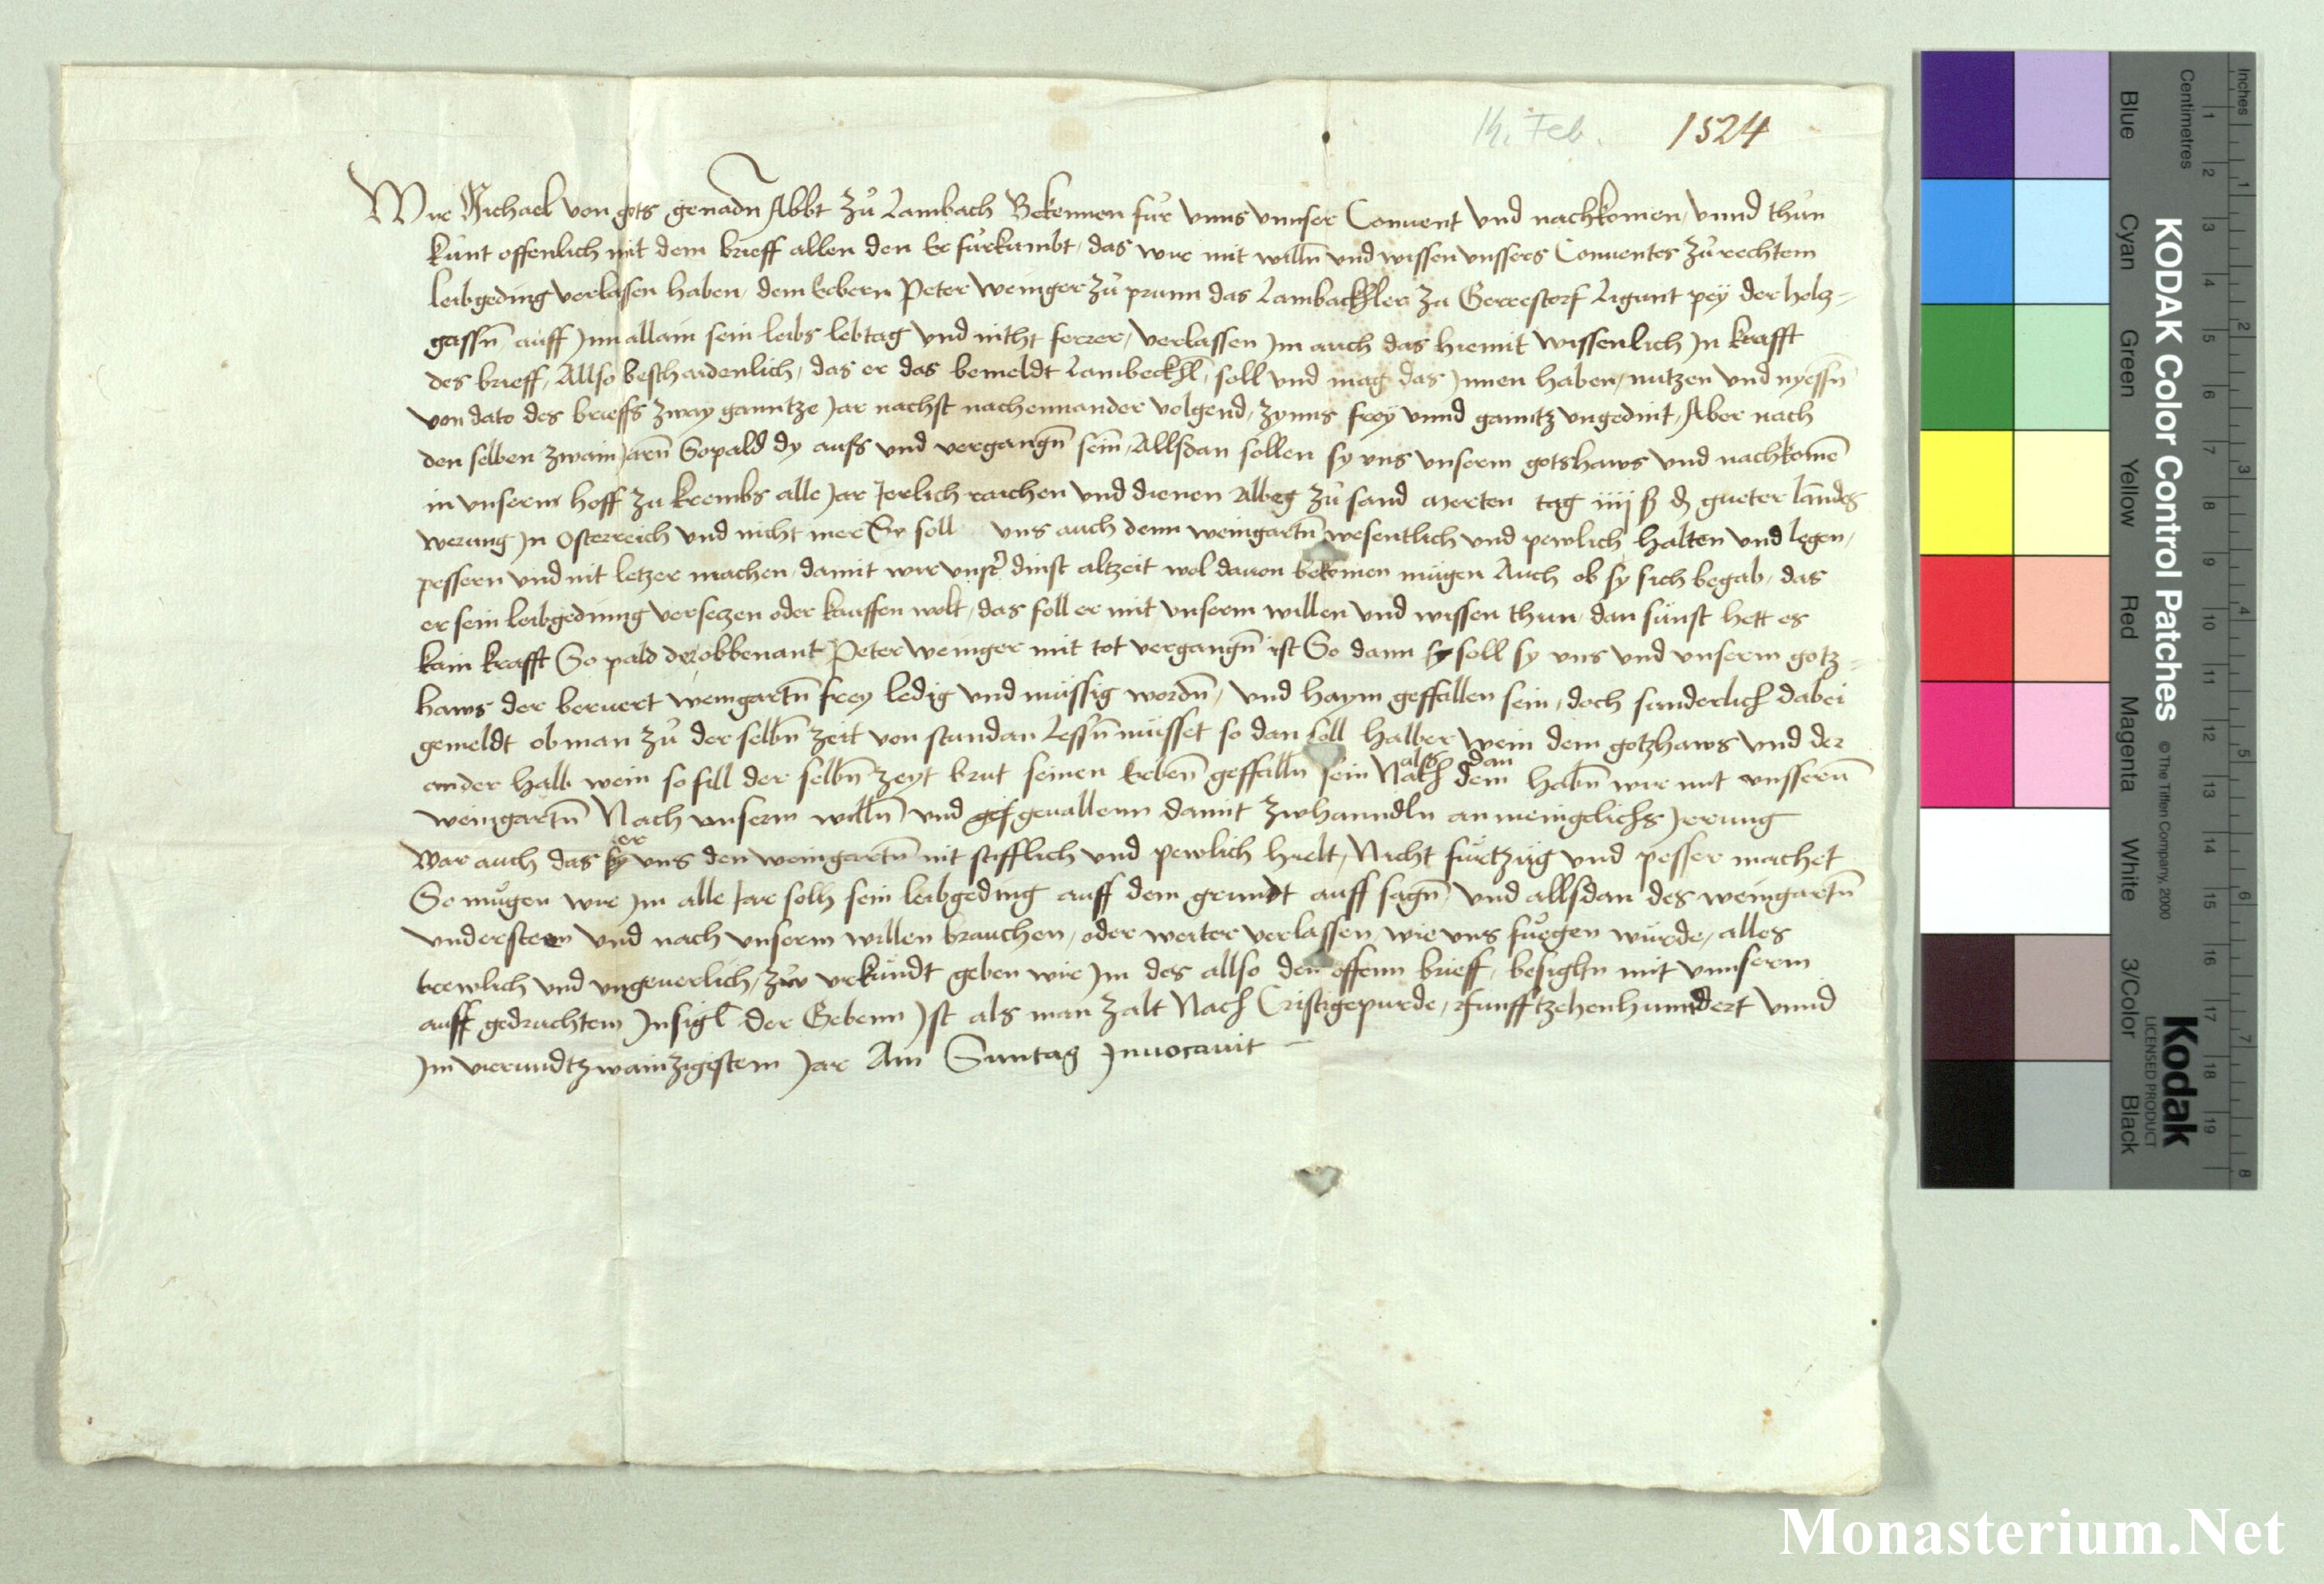 14. Feb. 1524
Wir Michael von gots genadn Abbt zů Lambach Bekennen für vnns vnnser Conuent vnd nachkomen, vnnd thůn
kůnt offenlich mit dem brieff allen den Er fürkumbt, das wir mit willn̄ vnd wissen vnssers Conuentes zů rechtem
leibgeding verlassen haben, dem Erbern Peter Weniger zů prunn das Lambackhler zu Gerrestorf Ligunt peÿ der holcz-
gassn̄ auff Jm allain sein leibs lebtag vnd nitht ferrer, verlassen Jm auch das hiemit wissenlich Jn krafft
des brieff, Allso beschaidenlich, das er das bemeldt Lambeckhl̄, soll vnd mag das Jnnen haben, nutzen vnd nyessn̄
von dato des brieffs zway ganntze Jar nachst nachennander volgend, zynns freÿ vnnd ganntz vngedint, Aber nach
den selben zwain Jarn̄ Sopald dy aufs vnd vergangn̄ sein, Allsdan sollen sy vns vnserm gotshaws vnd nachkomē
in vnserm hoff zu krembs alle Jar Jerlich raichen vnd dienen Albeg zů sand merten tag iiij ß ₰ gueter lanndes
werung Jn Osterreich vnd nicht mer Er soll vns auch denn weingartn̄ wesentlich vnd pewlich halten vnd legen,
pessern vnd nit letzer machen, damit wir vnsr̄ dinst altzeit wol dauon bekomen mügen Auch ob sy sich begab, das
er sein leibgedinng verseczen oder kauffen wolt, das soll er mit vnserm willen vnd wissen thun, dan sünst hett es
kain krafft So pald der obbenant Peter weniger mit tot vergangn̄ ist So dann sy soll sy vns vnd vnserm gotz-
haws der beruert weingartn̄ frey ledig vnd müssig wordn̄, vnd haym geffallen sein, doch sunderlich dabei
gemeldt ob man zů der selbn̄ zeit von stundan Lessn̄ müsset so dan soll halber wein dem gotzhaws vnd der
ander halb wein so fill der selbn̄ zeyt brut seinen Erben̄ geffalln̄ sein Nach dem habn̄ wir mit vnsserm̄
alls dan
weingartn̄ Nach vnserm willn̄ vnd gef geuallenn damit zwhanndln an menigclichs Jrrung
War auch das sy vns den weingartn̄ nit stifflich vnd pewlich hielt, Nicht fürtzüg vnd pesser machet
er
So mügen wir Jm alle Jar solh sein leibgeding auff dem grundt auff sagn̄ vnd allsdan des weingartn̄
vndersteen vnd nach vnserm willen brauchen, oder weiter verlassen, wie vns füegen würde, alles
trewlich vnd vngeuerlich, zw vrkündt geben wir Jm des allso den offenn brieff, besigltn mit vnnserm
auff gedrucktem Jnsigl̄ Der Gebenn Jst als man zalt Nach Cristi gepurde, Funfftzehenhunndert vnnd
Jm vierundtzwainzigistem Jar Am Suntag Jnuocauit –
Inches
Centimetres
KODAK Color Control Patches © The Tiffen Company, 2000
Kodak
LICENSED PRODUCT
Blue Cyan Green Yellow Red Magenta White 3/Color Black
1 2 3 4 5 6 7 8 9 10 11 12 13 14 15 16 17 18 19
1 2 3 4 5 6 7 8
Monasterium.Net